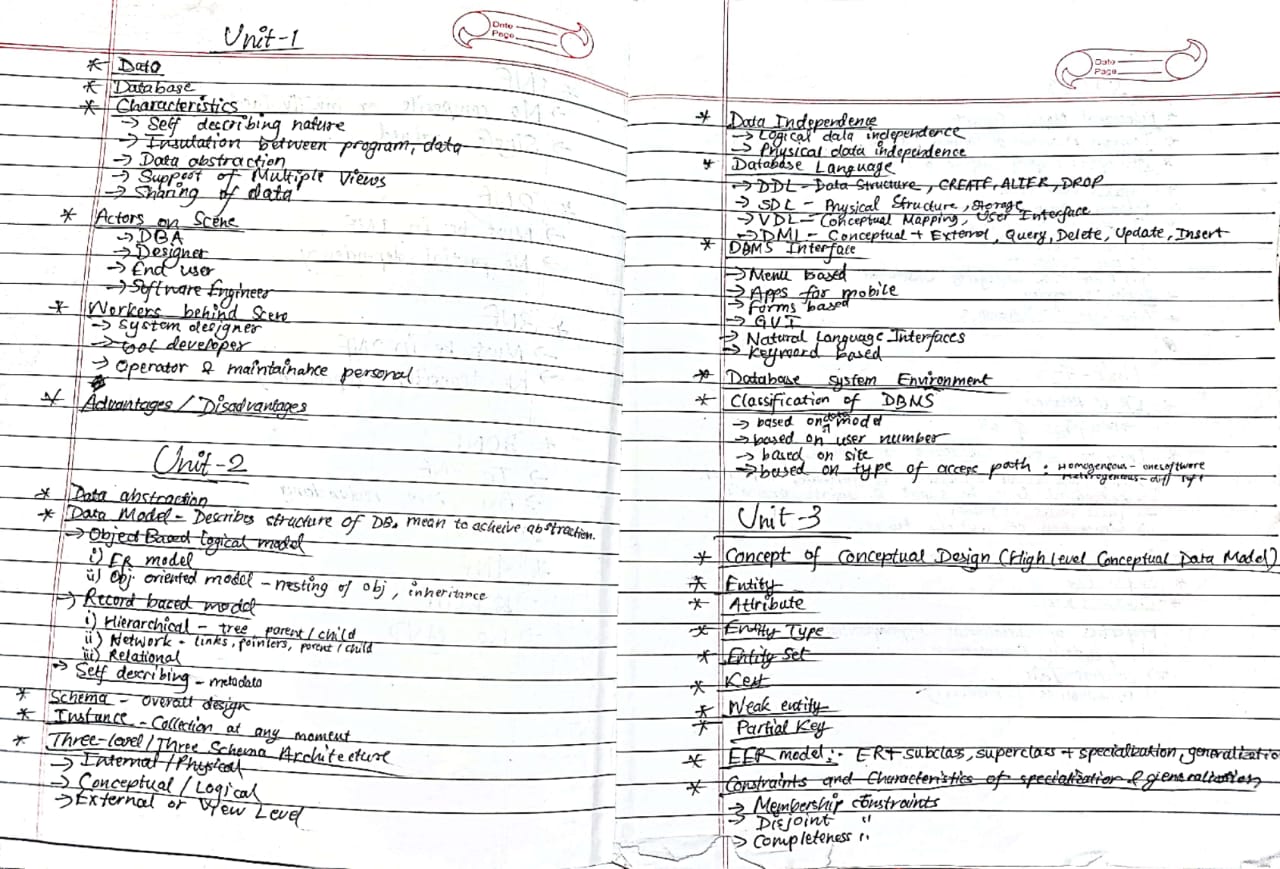 Unit-1
Date
Page
* Data
* Database
* Characteristics
→ Self describing nature
→ Insulation between program, data
→ Data abstraction
→ Support of Multiple Views
→ Sharing of data
* Actors on Scene
→ DBA
→ Designer
→ End user
→ Software Engineer
* Workers behind Scene
→ System designer
→ tool developer
→ Operator & maintainance personal
* Advantages / Disadvantages
Unit-2
* Data abstraction
* Data Model - Describes structure of DB. mean to acheive abstraction.
→ Object Based Logical model
i) ER model
ii) Obj oriented model - nesting of obj, inheritance
→ Record based model
i) Hierarchical - tree parent/child
ii) Network - links, pointers, parent/child
iii) Relational
→ Self describing - metadata
* Schema - overall design
* Instance - Collection at any moment
* Three-level/Three Schema Architecture
→ Internal/Physical
→ Conceptual/Logical
→ External or View Level
Date
Page
* Data Independence
→ Logical data independence
→ Physical data independence
* Database Language
→ DDL - Data Structure, CREATE, ALTER, DROP
→ SDL - Physical Structure, Storage
→ VDL - Conceptual Mapping, User Interface
→ DML - Conceptual + External, Query, Delete, Update, Insert
* DBMS Interface
→ Menu based
→ Apps for mobile
→ Forms based
→ GUI
→ Natural Language Interfaces
→ Keyword based
* Database system Environment
* Classification of DBMS
→ based on data model
→ based on user number
→ based on site
→ based on type of access path : Homogeneous - one software
Heterogenous - diff
Unit-3
* Concept of Conceptual Design (High Level Conceptual Data Model)
* Entity
* Attribute
* Entity Type
* Entity Set
* Keys
* Weak entity
* Partial Key
* EER model:- ER + subclass, superclass + specialization, generalizatio
* Constraints and Characteristics of specialization & generalization
→ Membership constraints
→ Disjoint "
→ Completeness "